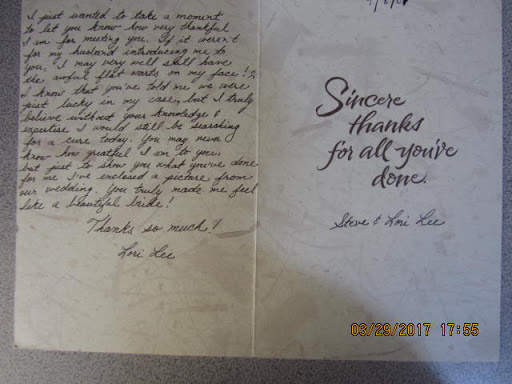 I just wanted to take a moment
to let you know how very thankful
I am for meeting you. If it weren't
for my husband introducing me to
you, I may very well still have
the awful flat warts on my face!
I know that you've told me we were
just lucky in my case, but I truly
believe without your knowledge &
expertise I would still be searching
for a cure today. You may never
know how greatful I am to you,
but just to show you what you've done
for me I've enclosed a picture from
our wedding. You truly made me feel
like a beautiful bride!
Thanks so much!
Lori Lee
Sincere
thanks
for all you've
done.
Steve & Lori Lee
03/29/2017 17:55